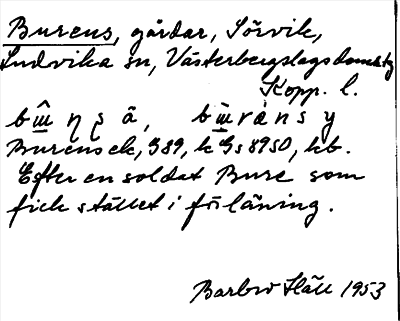 Burens, gårdar, Sörvik,
Ludvika sn, Västerbergslags domsktg
Kopp. l.
Burensek, 389, k Gs 8950, kb.
Efter en soldat Bure som
fick stället i förläning.
Barbro Häll 1953